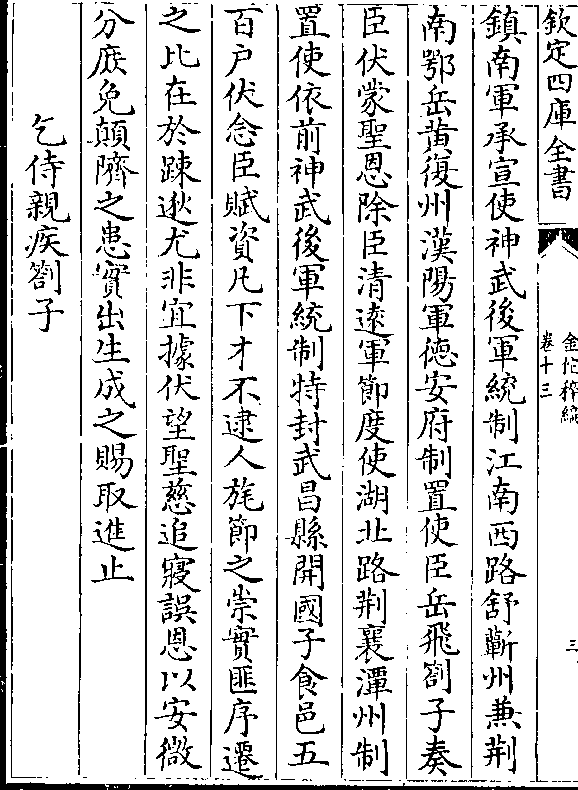 欽定四庫全書
金佗稡編
卷十三
三
鎮南軍承宣使神武後軍統制江南西路舒蘄州兼荆
南鄂岳黄復州漢陽軍徳安府制置使臣岳飛劄子奏
臣伏蒙聖恩除臣清逺軍節度使湖北路荆襄潭州制
置使依前神武後軍統制特封武昌縣開國子食邑五
百户伏念臣賦資凡下才不逮人旄節之崇實匪序遷
之比在於踈逖尤非宜據伏望聖慈追寢誤恩以安微
分庶免顛隮之患實出生成之賜取進止
乞侍親疾劄子